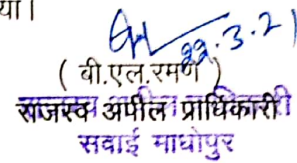 या।
22.3.21
( बी.एल.रमण )
राजस्व अपील प्राधिकारी
सवाई माधोपुर